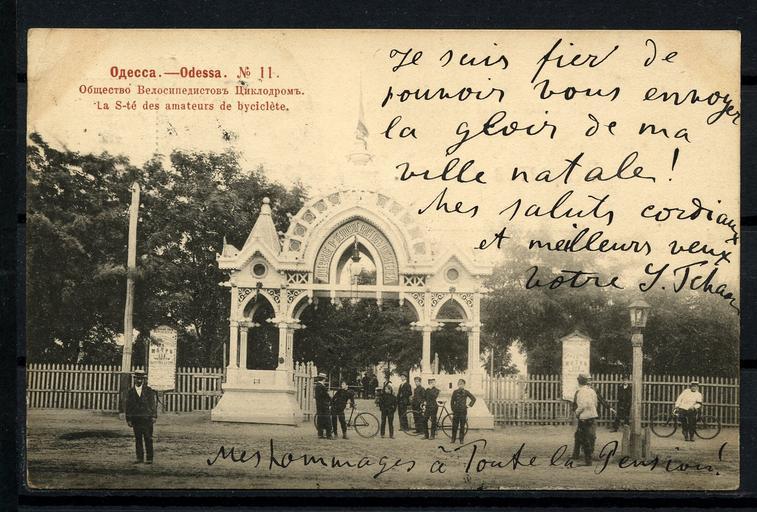 Одесса.—Odessa. № 11.
Общество Велосипедистовъ Циклодромъ.
La S-té des amateurs de byciclète.
Je suis fier de
pouvoir vous envoyer
la gloir de ma
ville natale!
Mes saluts cordiaux
et meilleurs veux
votre
Mes hommages à Toute la Pension!